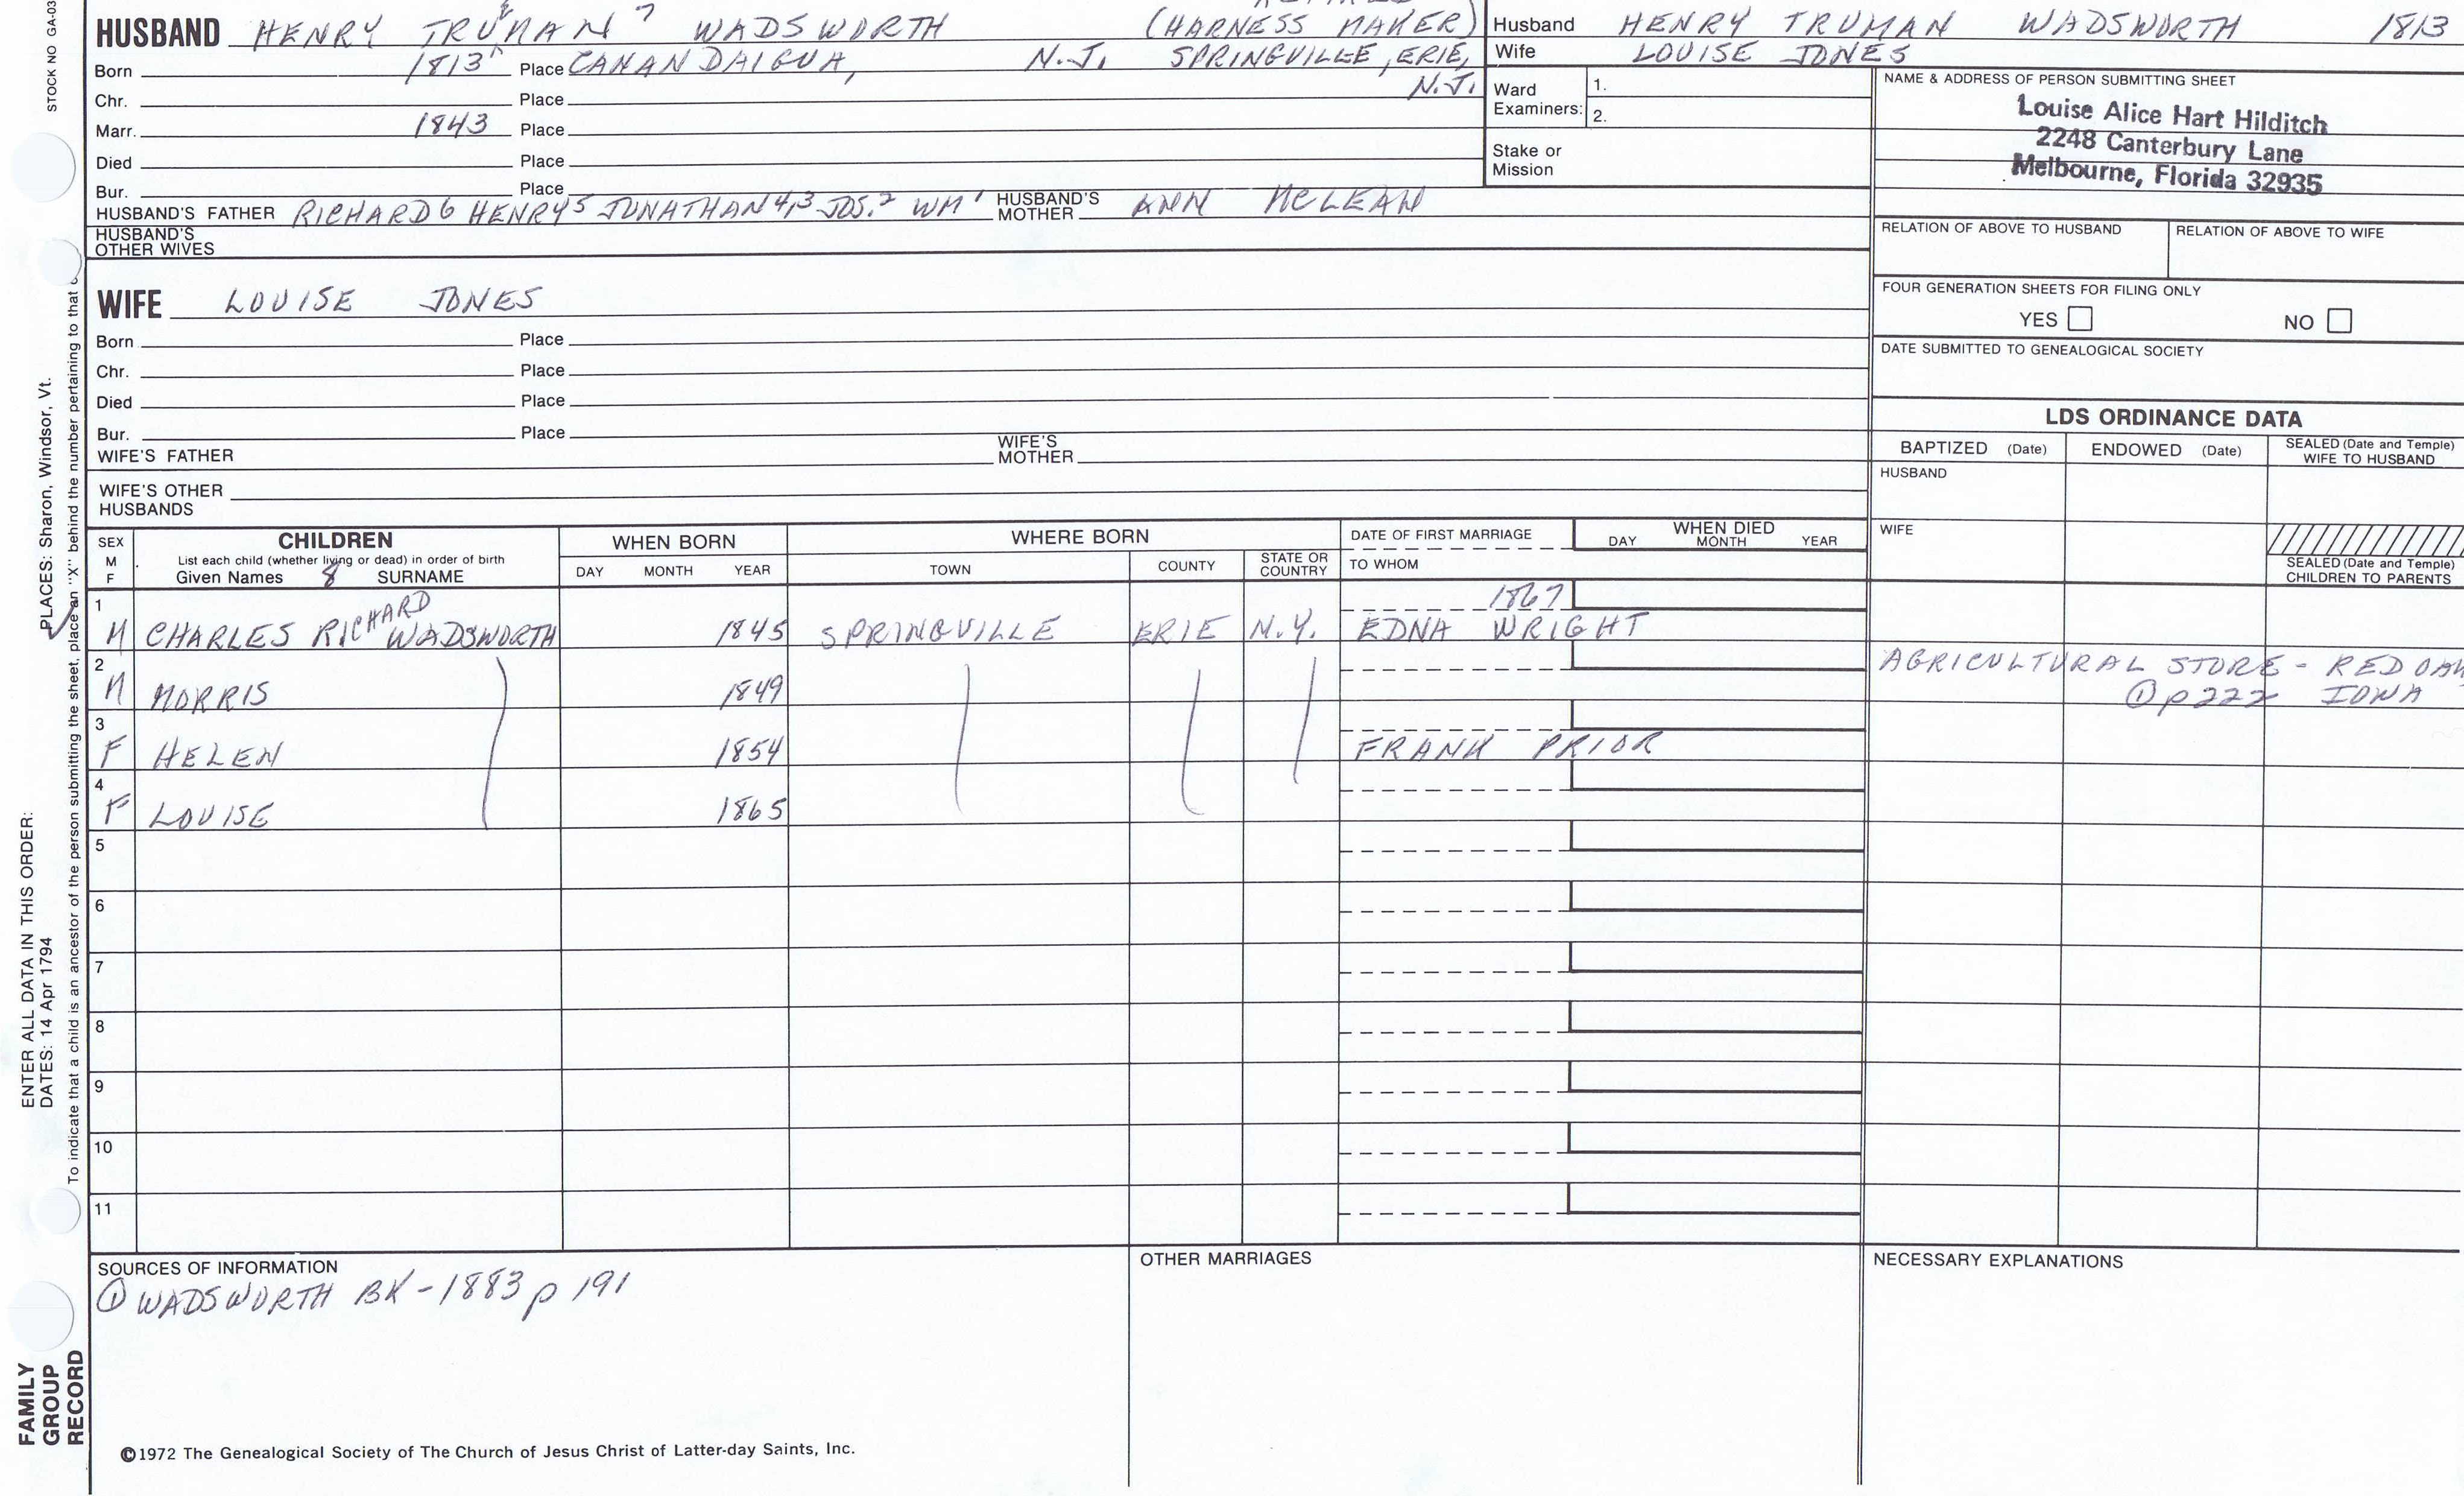 STOCK NO GA-03
HUSBAND HENRY TRUMAN 7 WADSWORTH (HARNESS MAKER)
Born 1813 Place CANANDAIGUA, N.J. SPRINGVILLE, ERIE,
N.J.
Chr. Place
Marr. 1843 Place
Died Place
Bur. Place
HUSBAND'S FATHER RICHARD 6 HENRY 5 JONATHAN 4,3 JOS. 2 WM 1 HUSBAND'S MOTHER ANN MCLEAN
HUSBAND'S OTHER WIVES
Husband HENRY TRUMAN WADSWORTH 1813
Wife LOUISE JONES
Ward Examiners: 1.
2.
Stake or Mission
NAME & ADDRESS OF PERSON SUBMITTING SHEET
Louise Alice Hart Hilditch
2248 Canterbury Lane
Melbourne, Florida 32935
RELATION OF ABOVE TO HUSBAND RELATION OF ABOVE TO WIFE
FOUR GENERATION SHEETS FOR FILING ONLY
YES NO
DATE SUBMITTED TO GENEALOGICAL SOCIETY
WIFE LOUISE JONES
Born Place
Chr. Place
Died Place
Bur. Place
WIFE'S FATHER WIFE'S MOTHER
WIFE'S OTHER HUSBANDS
LDS ORDINANCE DATA
BAPTIZED (Date) ENDOWED (Date) SEALED (Date and Temple) WIFE TO HUSBAND
HUSBAND
WIFE
SEALED (Date and Temple) CHILDREN TO PARENTS
SEX M F CHILDREN WHEN BORN WHERE BORN DATE OF FIRST MARRIAGE WHEN DIED
List each child (whether living or dead) in order of birth
Given Names 8 SURNAME DAY MONTH YEAR TOWN COUNTY STATE OR COUNTRY TO WHOM DAY MONTH YEAR
1 M CHARLES RICHARD WADSWORTH 1845 SPRINGVILLE ERIE N.Y. 1867 EDNA WRIGHT
2 M MORRIS 1849 AGRICULTURAL STORE - RED OAK
① p 222 IOWA
3 F HELEN 1854 FRANK PRIOR
4 F LOUISE 1865
5
6
7
8
9
10
11
SOURCES OF INFORMATION OTHER MARRIAGES NECESSARY EXPLANATIONS
① WADSWORTH BK - 1883 p 191
©1972 The Genealogical Society of The Church of Jesus Christ of Latter-day Saints, Inc.
FAMILY GROUP RECORD
ENTER ALL DATA IN THIS ORDER:
DATES: 14 Apr 1794
PLACES: Sharon, Windsor, Vt.
To indicate that a child is an ancestor of the person submitting the sheet, place an "X" behind the number pertaining to that